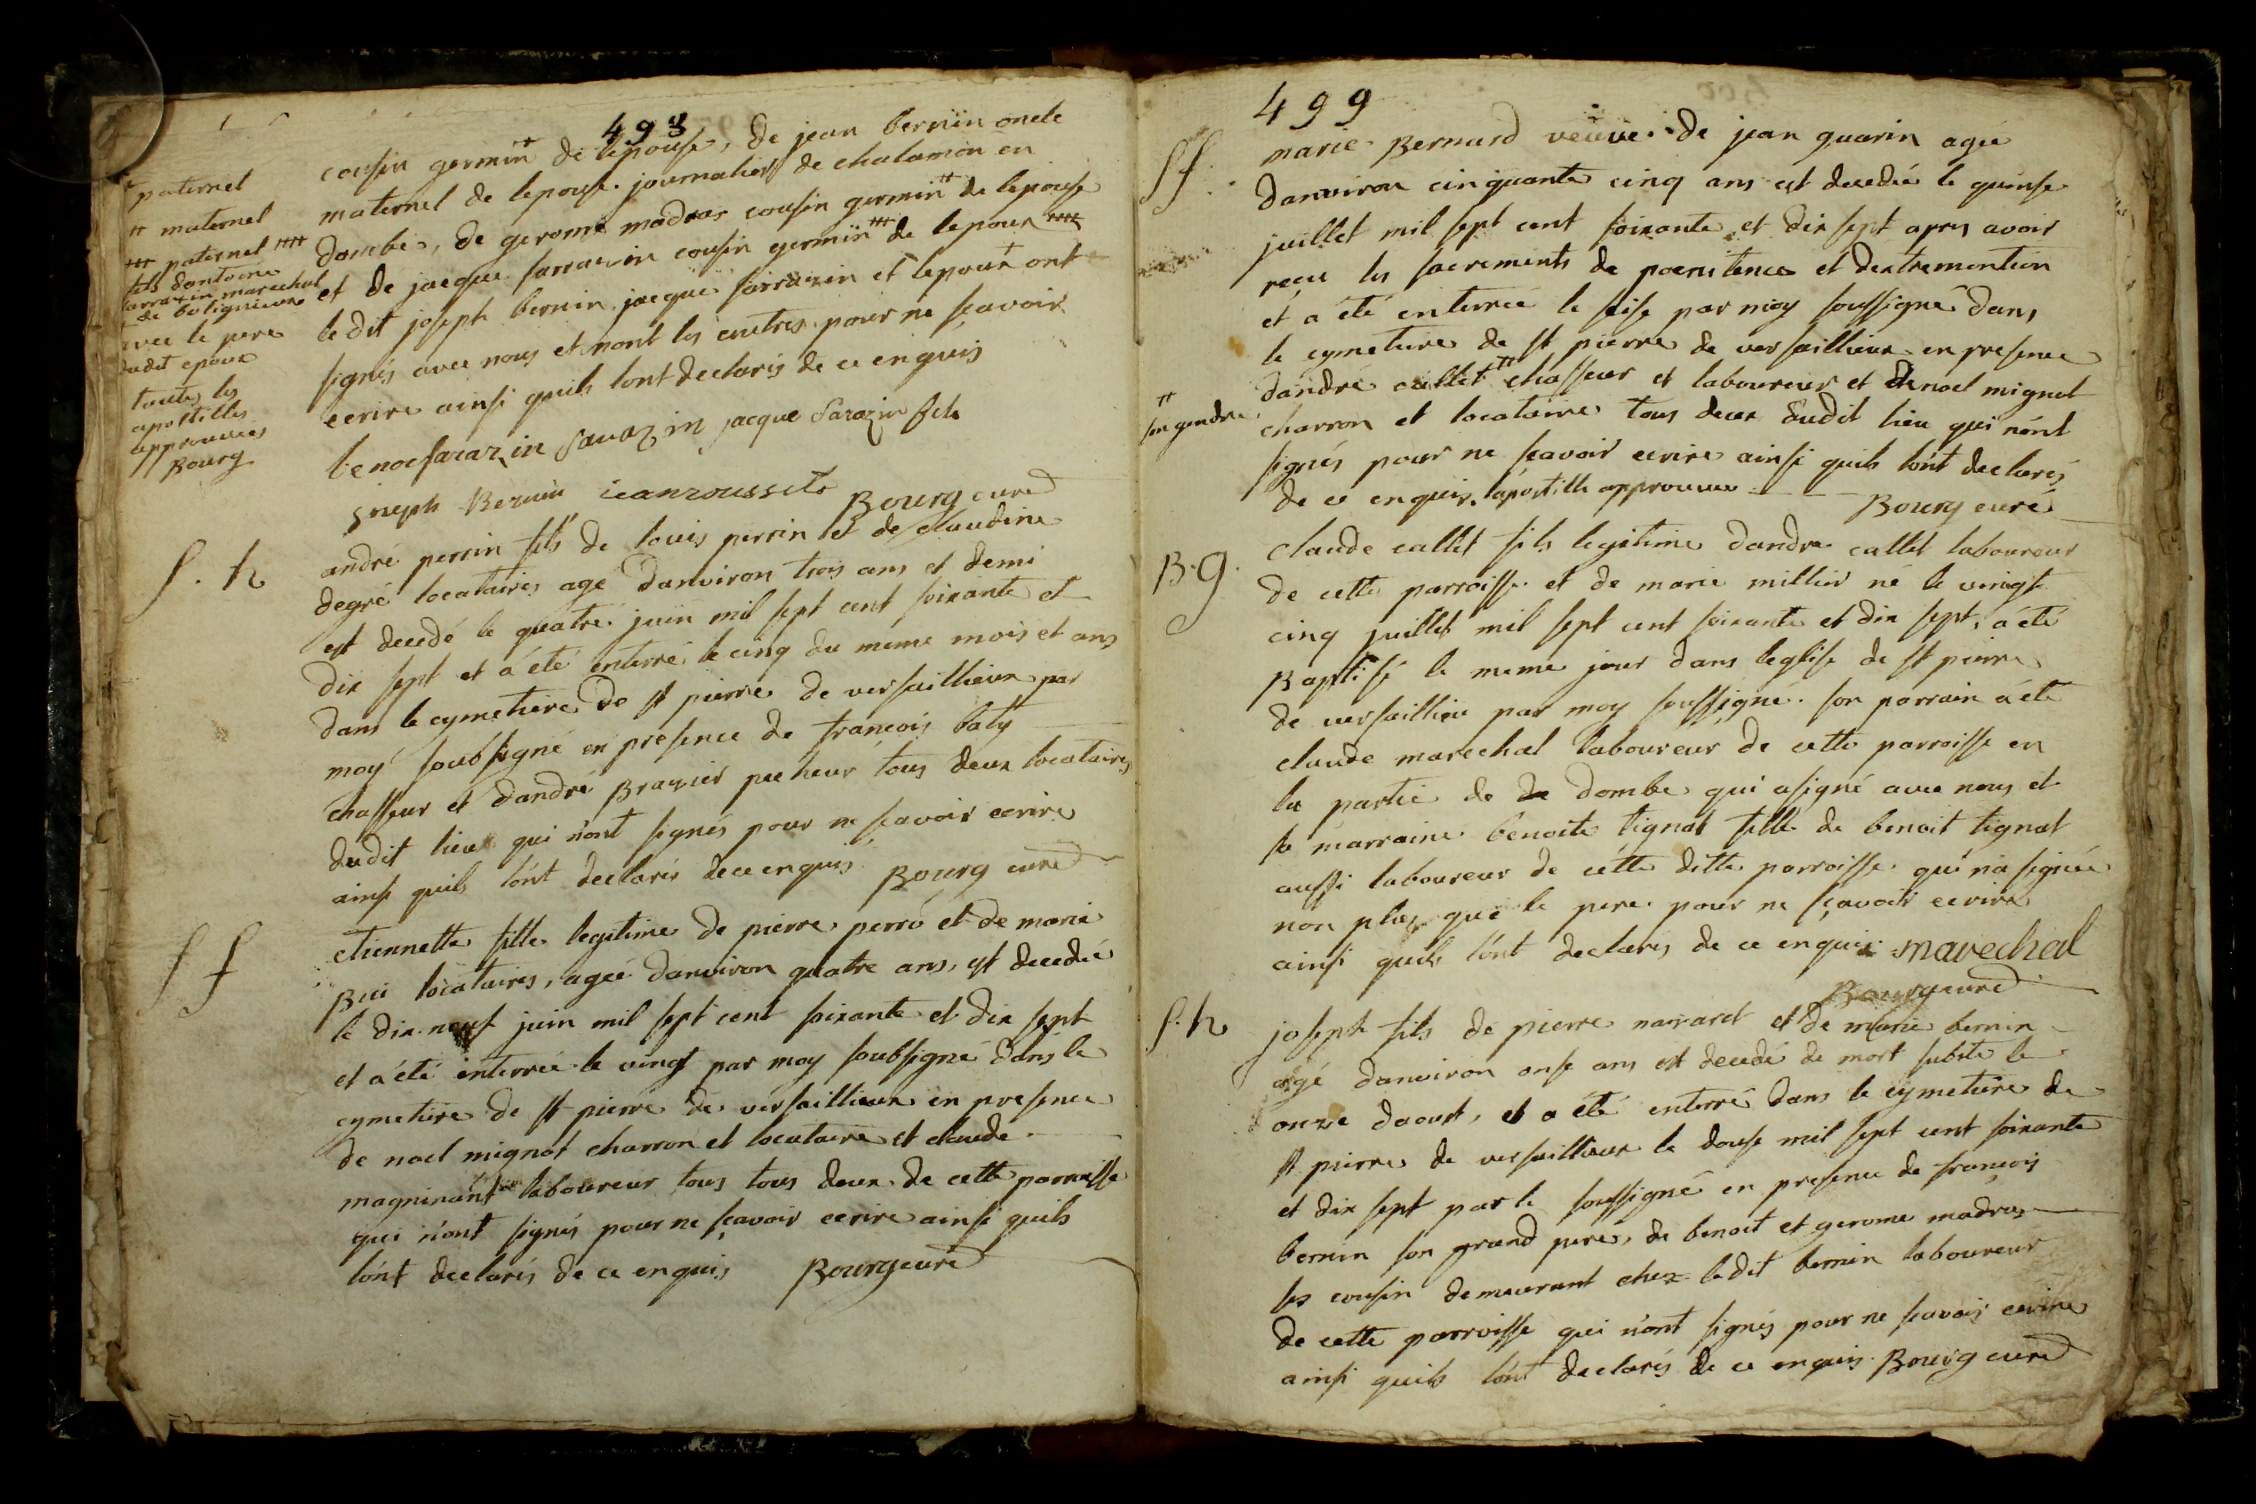 498
+ paternel
++ maternel
+++ paternel ++++
fils dantoine
sarrazin marechal
de
avec le pere
dudit epoux
toutes les
apostilles
approuvees
Bourg
cousin germin + de lepouse, de jean bernin oncle
maternel de lepouse journaliers de chalamon en
dombe, de gerome madras cousin germin ++ de lepouse
et de jacque sarrazin cousin germin +++ de lepoux ++++
le dit joseph bernin jacque sarrazin et lepoux ont
signés avec nous et nont les autres pour ne sçavoir
ecrire ainsi quils lont declarés de ce enquis
benoe sarazin sarazin jacque Sarazin fils
joseph Bernin jean rousset Bourg curé
S. h
andré perrin fils de louis perrin et de claudine
degré locataires agé danviron trois ans et demi
est decedé le quatre juin mil sept cent soixante et
dix sept et a été enterré le cinq du meme mois et ans
dans le cymetiere de st pierre de versaillieux par
moy soubsigné en presence de francois baty
chasseur et dandré Brazier pecheur tous deux locataires
dudit lieu qui n'ont signés pour ne scavoir ecrire
ainsi quils l'ont declarés de ce enquis Bourg curé
S f
etiennette fille legitime de pierre perro et de marie
Bui locataires, agée danviron quatre ans, est decedée
le dix neuf juin mil sept cent soixante et dix sept
et a été enterrée le vingt par moy soubsigné dans le
cymetiere de st pierre de versaillieux en presence
de noel mignot charron et locataire et claude
magninant laboureur tous tous deux de cette parroisse
qui n'ont signés pour ne sçavoir ecrire ainsi quils
l'ont declarés de ce enquis Bourg curé
499
S f.
marie Bernard veuve de jean guarin agée
danviron cinquante cinq ans est decedée le quinse
juillet mil sept cent soixante et dix sept apres avoir
recu les sacrements de poenitence et dextremontion
et a été enterrée le seise par moy soussigné dans
le cymetiere de st pierre de versaillieux en presence
dandré callet ++ chasseur et laboureur et de noel mignot
++
son gendre
charron et locataire tous deux dudit lieu qui n'ont
signés pour ne scavoir ecrire ainsi quils lo'nt declarés
de ce enquis. apostille approuvee Bourg curé
B. g.
claude callet fils legitime dandre callet laboureur
de cette parroisse et de marie millier né le vingt
cinq juillet mil sept cent soixante et dix sept, a été
Baptisé le meme jour dans leglise de st pierre
de versaillieu par moy soussigné. son parrain a été
claude marechal laboureur de cette parroisse en
la partie de dombe qui a signé avec nous et
sa marraine benoite tignat fille de benoit tignat
aussi laboureur de cette ditte parroisse qui n'a signée
non plus que le pere pour ne sçavoir ecrire
ainsi quils l'ont declarés de ce enquis marechal
Bourg curé
S. h
joseph fils de pierre navaret et de marie bernin
agé danviron onse ans est decedé de mort subite le
onze daoust, et a été enterré dans le cymetiere de
st pierre de versaillieux le douse mil sept cent soixante
et dix sept par le soussigné en presence de francois
bernin son grand pere, de benoit et gerome madras
ses cousin demeurant chez ledit bernin laboureur
de cette parroisse qui n'ont signés pour ne scavoir ecrire
ainsi quils l'ont declarés de ce enquis Bourg curé